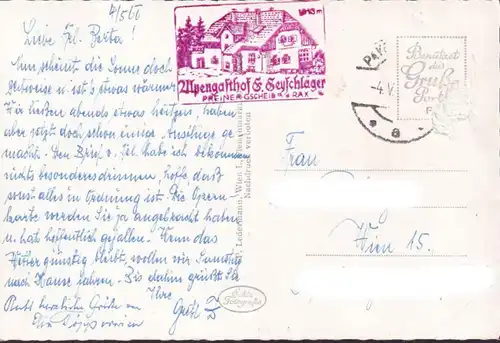 4/5 60
Liebe Frl. Berta!
Nun scheint die Sonne doch
zeitweise u. ist's etwas wärmer.
Wir heizen abends etwas heitzen, haben
aber jetzt doch schon einige Ausflüge ge-
macht. Den Brief v. Frl. habe ich bekommen
nichts besonderes drinnen, hoffe, daß
sonst alles in Ordnung ist. Die Opern-
karte werden Sie ja angebracht haben
u. hat hoffentlich gefallen. Wenn das
Wetter günstig bleibt, wollen wir Samstag
nach Hause fahren. Bis dahin grüßt Sie
Ihre
Gretl Z
herzliche Grüße von
1013 m
Alpengasthof E. Geyschlager
PREINER GSCHEID a. d. RAX
Ledermann, Wien I.,
Nachdruck verboten
Echte
Fotografie
PAY
4. V.
a
Benützet
die
Gruß
Frau
Wien 15.